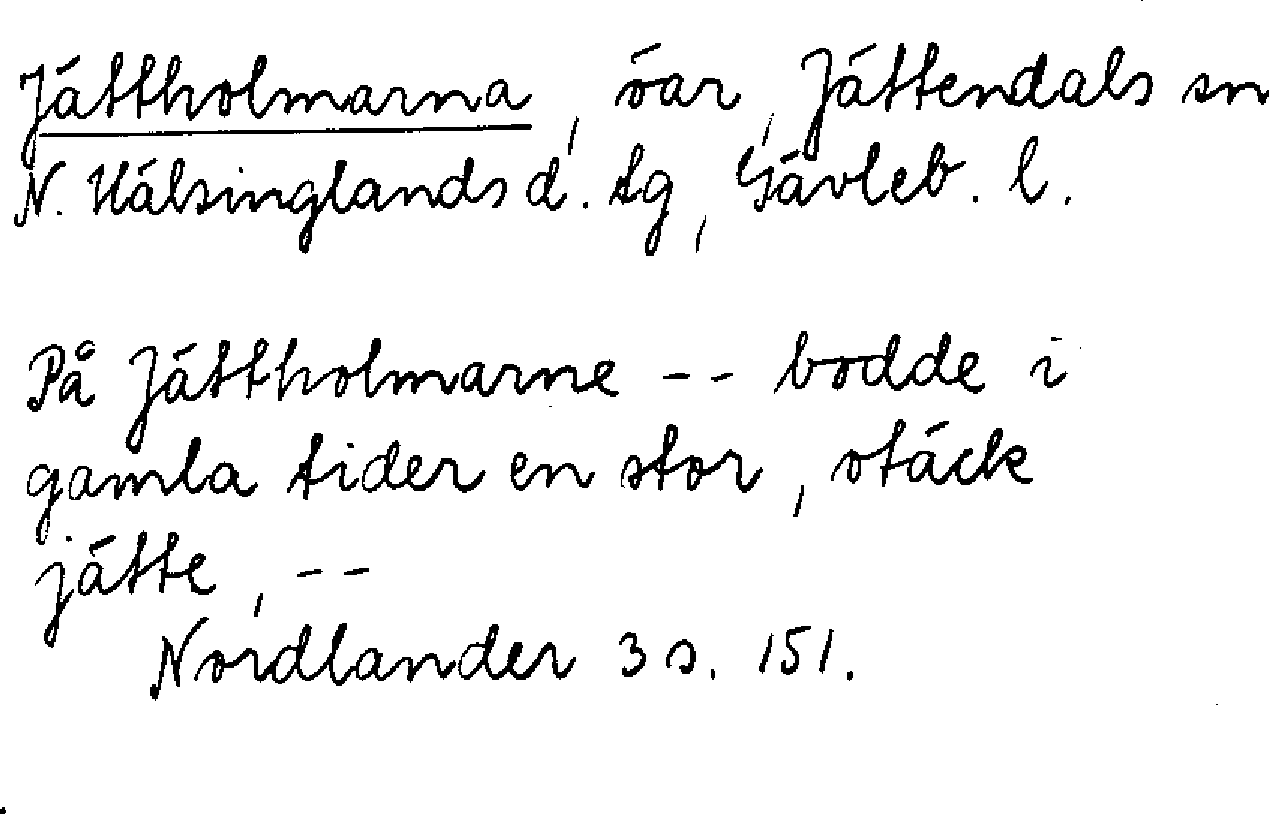 Jättholmarna, öar, Jättendals sn
N. Hälsinglands d. tg, Gävleb. l.
På Jättholmarne -- bodde i
gamla tider en stor, otäck
jätte, --
Nordlander 3 s. 151.